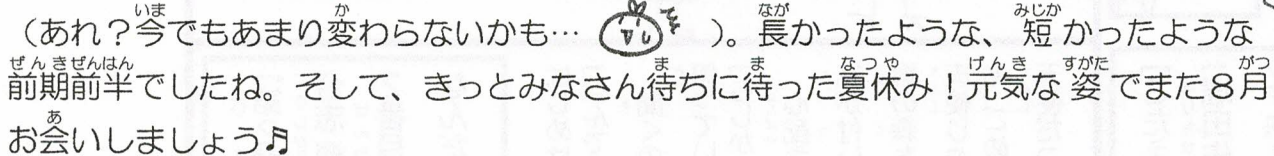 （あれ？今でもあまり変わらないかも…　）。長かったような、短かったような
前期前半でしたね。そして、きっとみなさん待ちに待った夏休み！元気な姿でまた８月
お会いしましょう♬